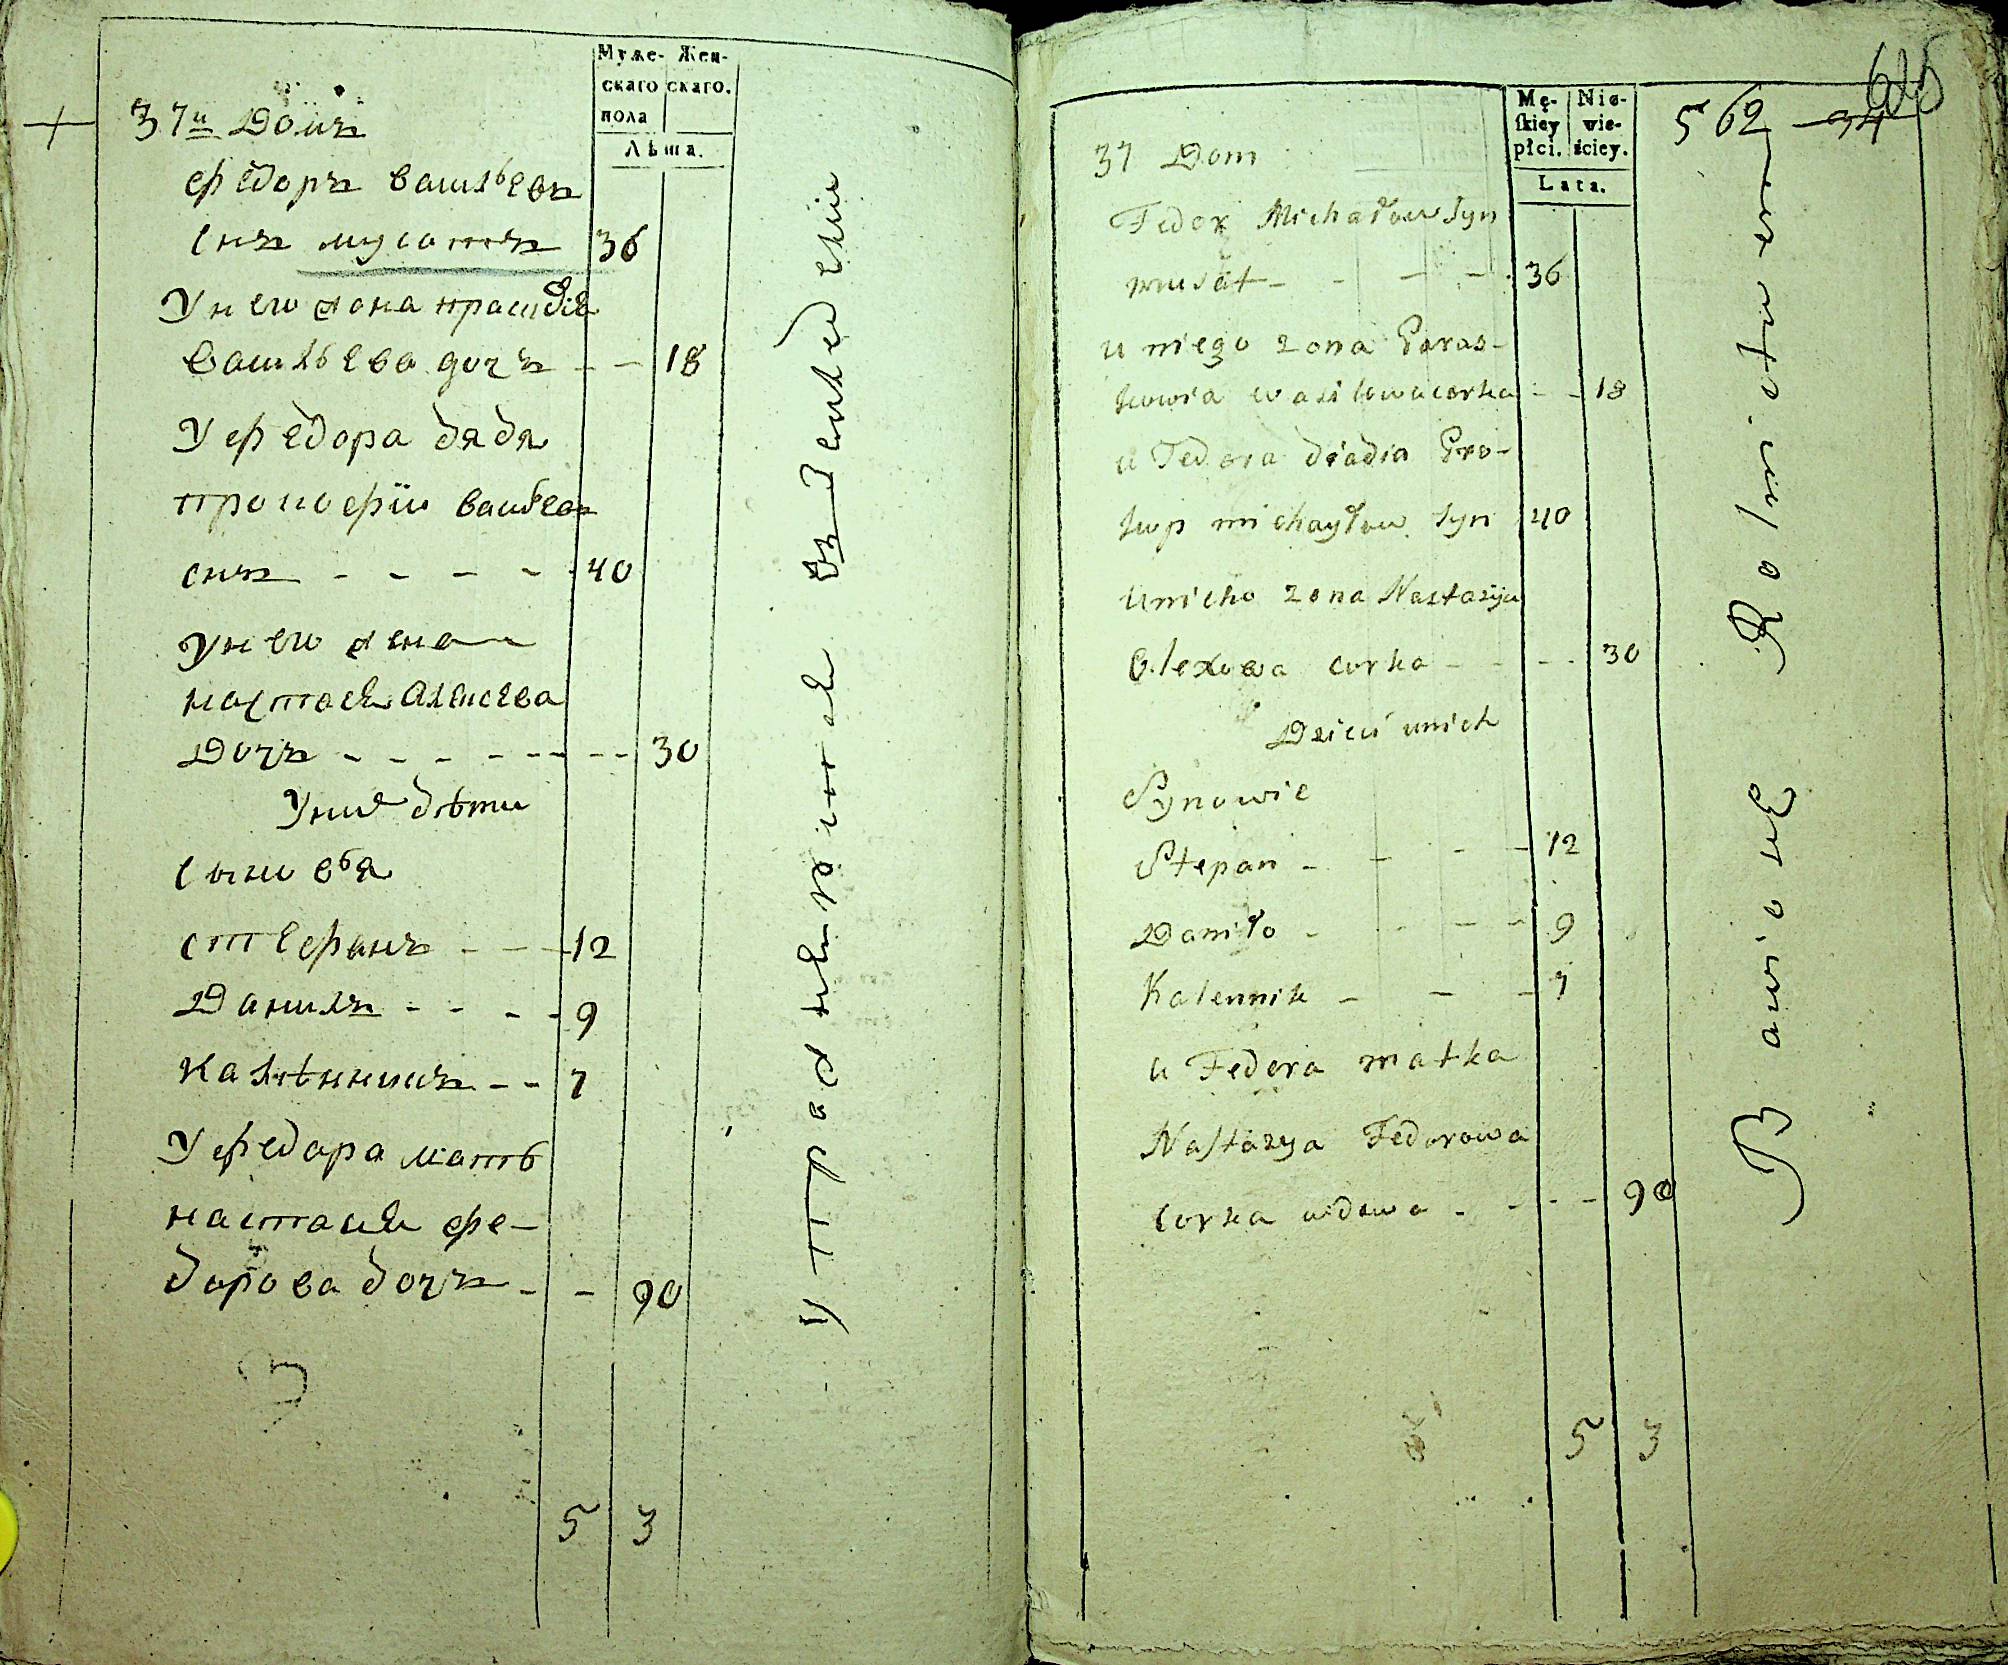 Муже- Жен-
скаго скаго.
пола
Лѣта.
37й Домъ
Федоръ Васильевъ
снъ мусатъ 36
У него жона прасковіа
Васильева дочъ - - 18
У Федора дядя
прокофій Василев
снъ - - - - - 40
У него жена
настася Алексева
Дочъ - - - - - - - - 30
У них дѣти
сыновья
стефанъ - - - 12
Данилъ - - - - 9
Калѣнникъ - - 7
У федора мать
настася фе-
дорова дочъ - - 90
5 3
Mę- Nie-
skiey wie-
płci. ściey.
Lata.
5 62
37 Dom
Fedor Michałow syn
musat - - - - 36
u niego zona Paras-
kowia wasilowa corka - - 18
u Fedora diadia Pro-
kop michayłow syn 40
u nieho zona Nastazija
Olexowa corka - - - - 30
Dzieci u nich
Synowie
Stepan - - - - 12
Daniło - - - - 9
Kalennik - - - 7
u Fedora matka
Nastazya Fedorowa
corka wdowa - - - - 90
5 3